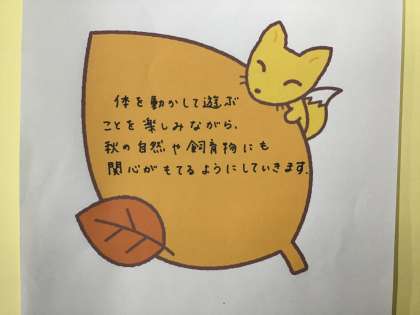 体を動かして遊ぶ
ことを楽しみながら、
秋の自然や飼育物にも
関心がもてるようにしていきます。